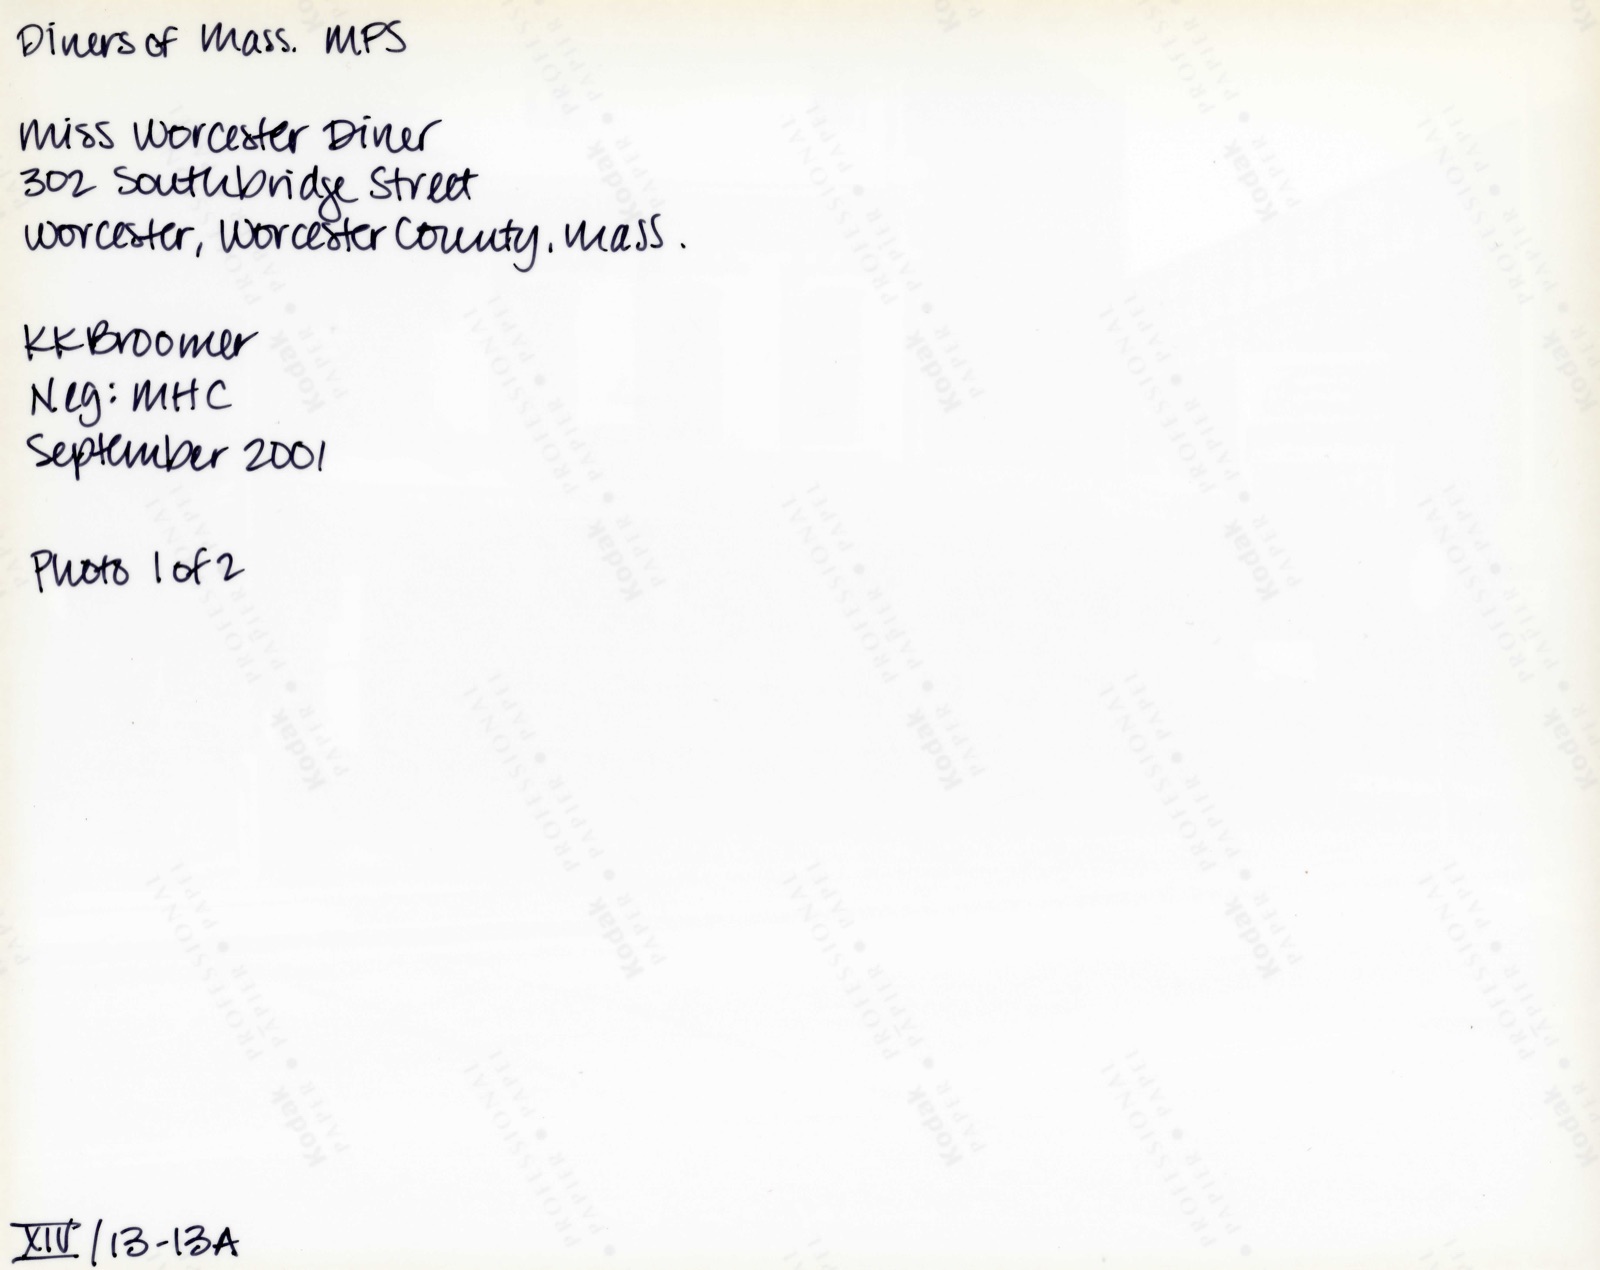 Diners of Mass. MPS
Miss Worcester Diner
302 Southbridge Street
Worcester, Worcester County, Mass.
KKBroomer
Neg: MHC
September 2001
Photo 1 of 2
XIV/13-13A